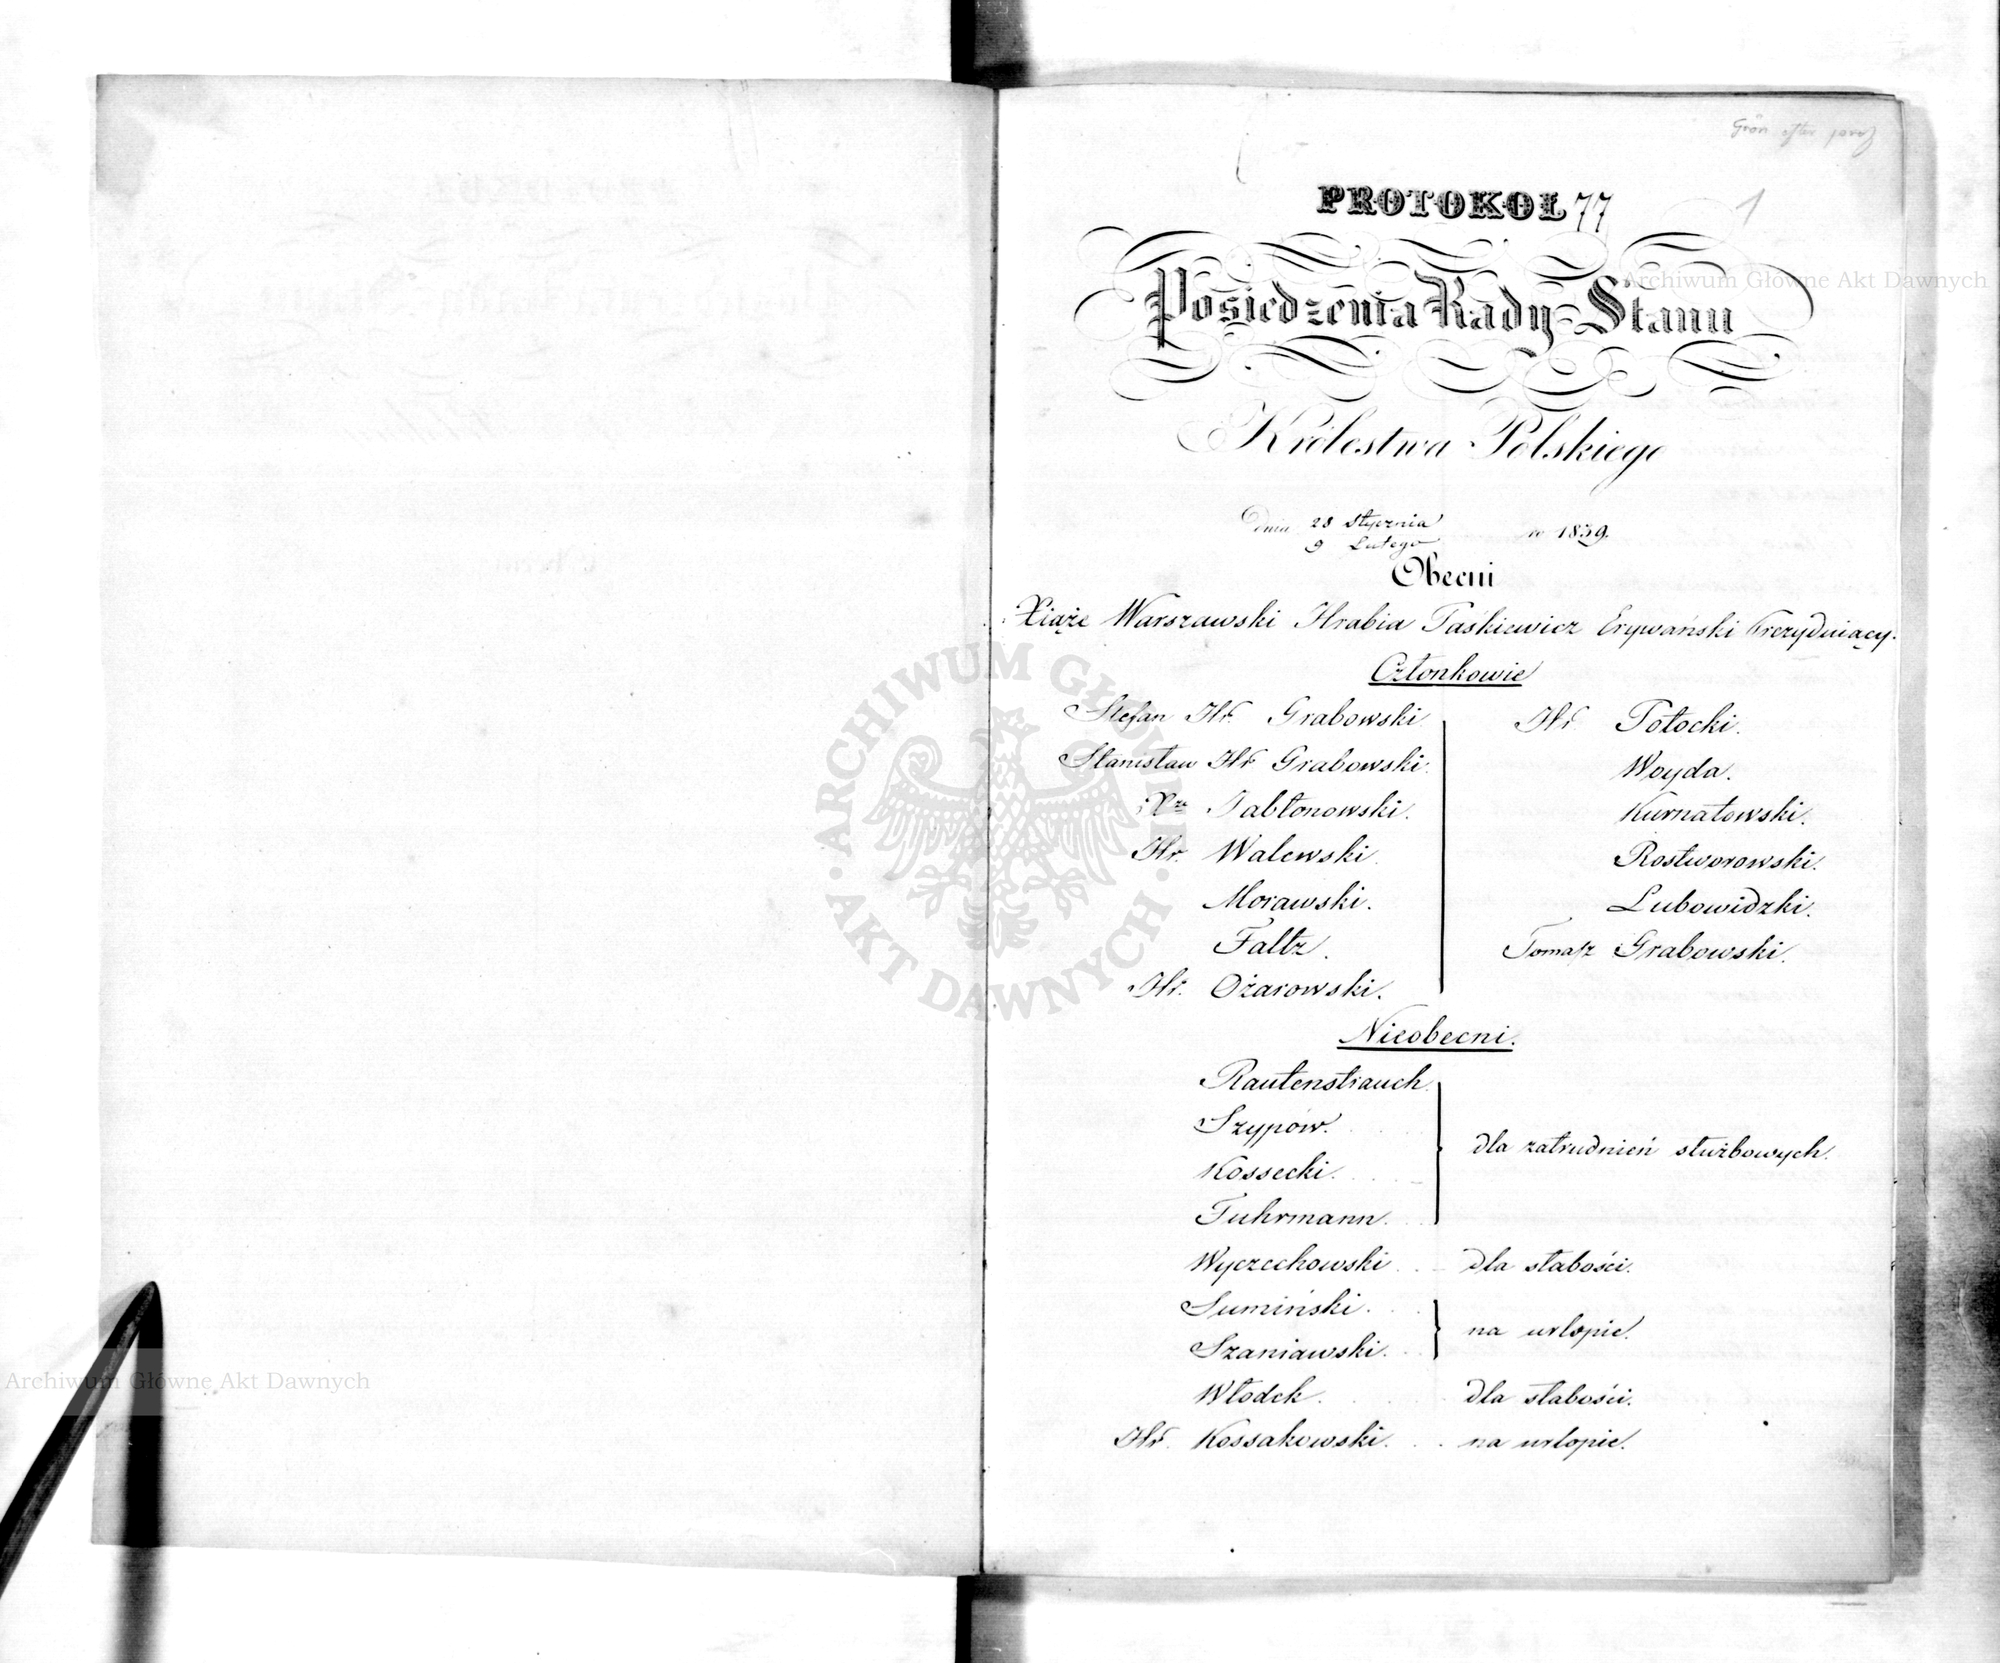 1
PROTOKOŁ 77
Posiedzenia Rady Stanu
Królestwa Polskiego
Dnia 28 Stycznia w 1839.
9 Lutego
Obecni
Xiąże Warszawski Hrabia Paśkiewicz Erywański Prezydniący.
Członkowie
Stefan Hr. Grabowski.
Stanisław Hr Grabowski.
Xże Jabłonowski.
Hr. Walewski.
Morawski.
Faltz.
Hr. Ożarowski.
Hr Potocki.
Woyda.
Kurnatowski.
Rostworowski.
Lubowidzki.
Tomasz Grabowski.
Nieobecni.
Rautenstrauch.
Szypów.
Kossecki.
Fuhrmann.
dla zatrudnień służbowych.
Wyczechowski dla słabości.
Sumiński.
Szaniawski.
na urlopie.
Włodek. dla słabości.
Hr. Kossakowski. na urlopie.
Archiwum Główne Akt Dawnych
ARCHIWUM GŁÓWNE AKT DAWNYCH
Archiwum Główne Akt Dawnych